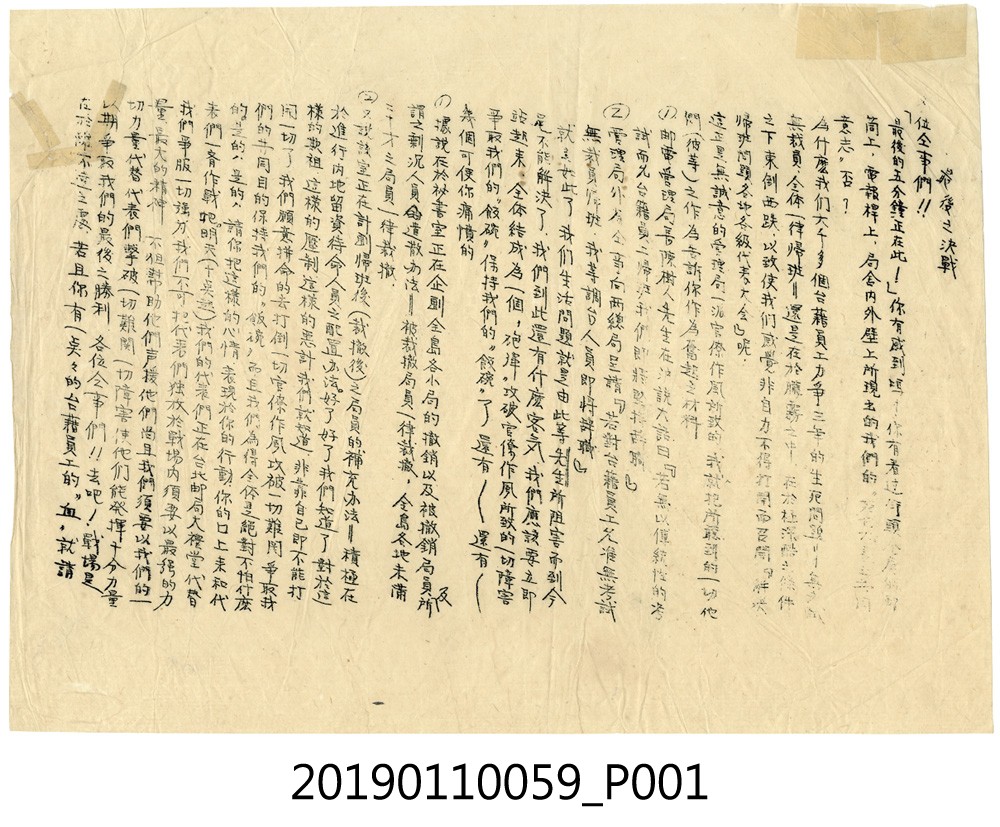 最後之決戰
位仝事們!!
「最後的五分鐘正在此!」你有感到
筒上,電報桿上,局舍內外壁上所現出的我們的。
意志〟否?
為什麼我们大千多個台籍員工力爭三年的生死問題
無裁員,全体一律歸班‖還是在於朦霧之中
之下東倒西跌,以致使我们感覺非自力不得打開而召開「解決
歸班問題各計各級代表大会」呢.
這正是無誠意的管理局一派官僚作風所致的,我就把所聽到的一切他
們(彼等)之作為告訴你作為奮起之材料
(1)郵電管理局長陳樹人先生在 說大話曰「若無以傳統性的考
試而允台籍員工歸班我們即將堅持辭職」
(2)管理局外局仝高 向兩總局呈請「若對台籍員工允准無考試
無裁員歸班,我等調台人員即將辞職」
就是如此了,我们生活問題就是由此等先生所阻害而到今
是不能解決了.我們到此還有什麼客気.我們應該要立即
站起来,全体結成為一個〝砲彈〟攻破官僚作風所致的一切障害
爭取我們的〝飯碗〟保持我們的〝飯碗〟了 還有——還有——
幾個可使你痛憤的
(1)據說在於秘書室正在企劃全島各小局的撤銷以及被撤銷局員所及
謂之剩冗人員的遣散办法‖被裁撤局員一律裁撤,全島各地未滿
三十才之局員一律裁撤
(2)又於該室正在計劃歸班後(裁撤後)之局員的補充办法‖積極在
於進行內地留資待命人員之配置办法.好了好了我們知道了對於這
樣的欺詛這樣的壓制這樣的惡計我們就知道.非靠自己即不能打
開一切了,我們願意拚命的去打倒一切官僚作風攻破一切難関.爭取我
們的共同目的保持我們的〝飯碗〟而且我們為得全体是絕對不怕什麼
的是的!是的!請你把這樣的心情,表現於你的行動,你的口上来和代
表們一齊作戰吧明天(十 )我們的代表們正在台北郵局大禮堂代替
我們爭服一切強 力我們不可把代表們独放於戰場內須要以最強的力
量,最大的精神 不但幫助他們声援他們尚且我們須要以我們的一
切力量代替代表們擊破一切難関一切障害使他们能発揮十分力量
以期爭取我們的最後之勝利 各位仝事們!!去吧!戰場是
在於 不遠之處,若且你有一點々的台籍員工的〝血〟就請
20190110059_P001